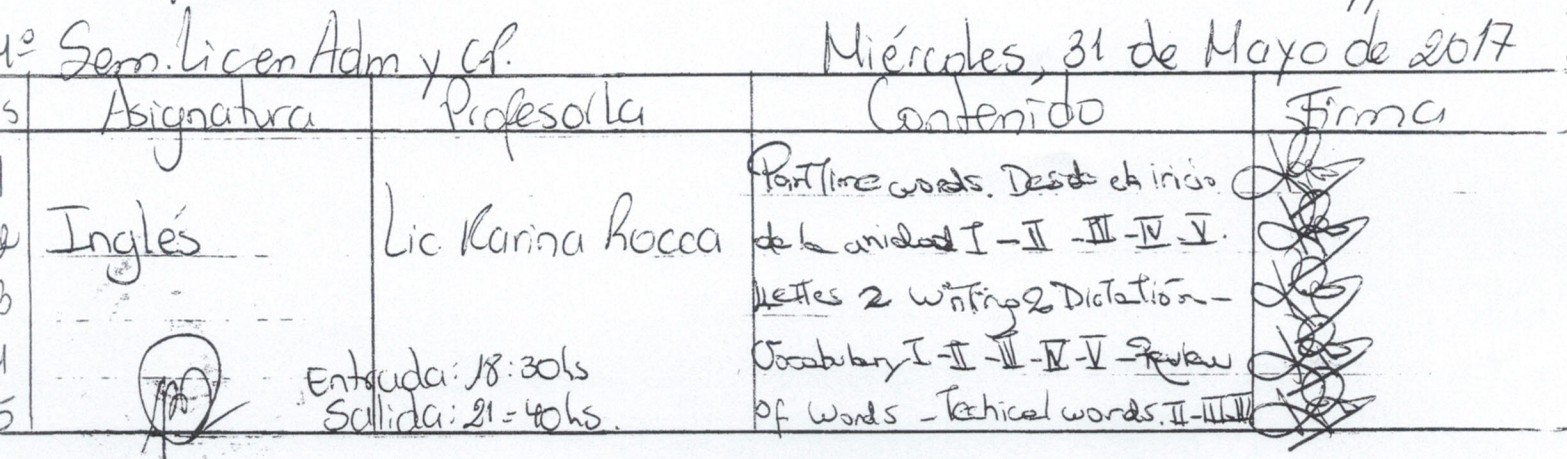 4º Sem. Licen Adm y CP. Miércoles, 31 de Mayo de 2017
s Asignatura Profesor/la Contenido Firma
1 Part Time words. Desde el inicio
2 Inglés Lic Karina Rocca de la unidad I - II - III - IV - V.
3 Lettes 2 writing 2 Dictation -
4 Entrada: 18:30hs Vocabulary I - II - III - IV - V - Review
5 Salida: 21=40hs. of words - Techical words. II - III